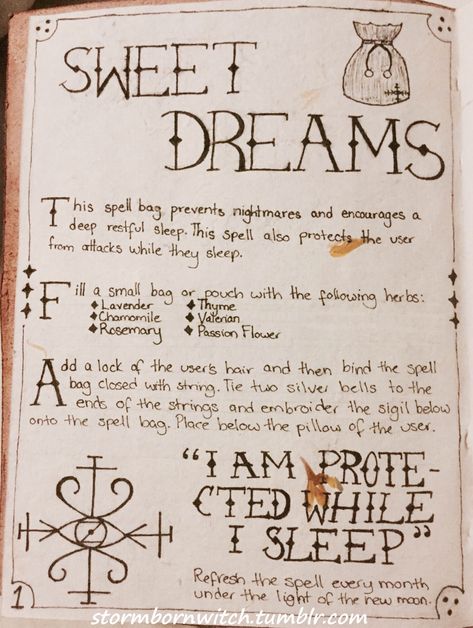 SWEET
DREAMS
This spell bag prevents nightmares and encourages a
deep restful sleep. This spell also protects the user
from attacks while they sleep.
Fill a small bag or pouch with the following herbs:
Lavender Thyme
Chamomile Valerian
Rosemary Passion Flower
Add a lock of the user's hair and then bind the spell
bag closed with string. Tie two silver bells to the
ends of the strings and embroider the sigil below
onto the spell bag. Place below the pillow of the user.
"I AM PROTE-
CTED WHILE
I SLEEP"
Refresh the spell every month
under the light of the new moon.
1
stormbornwitch.tumblr.com